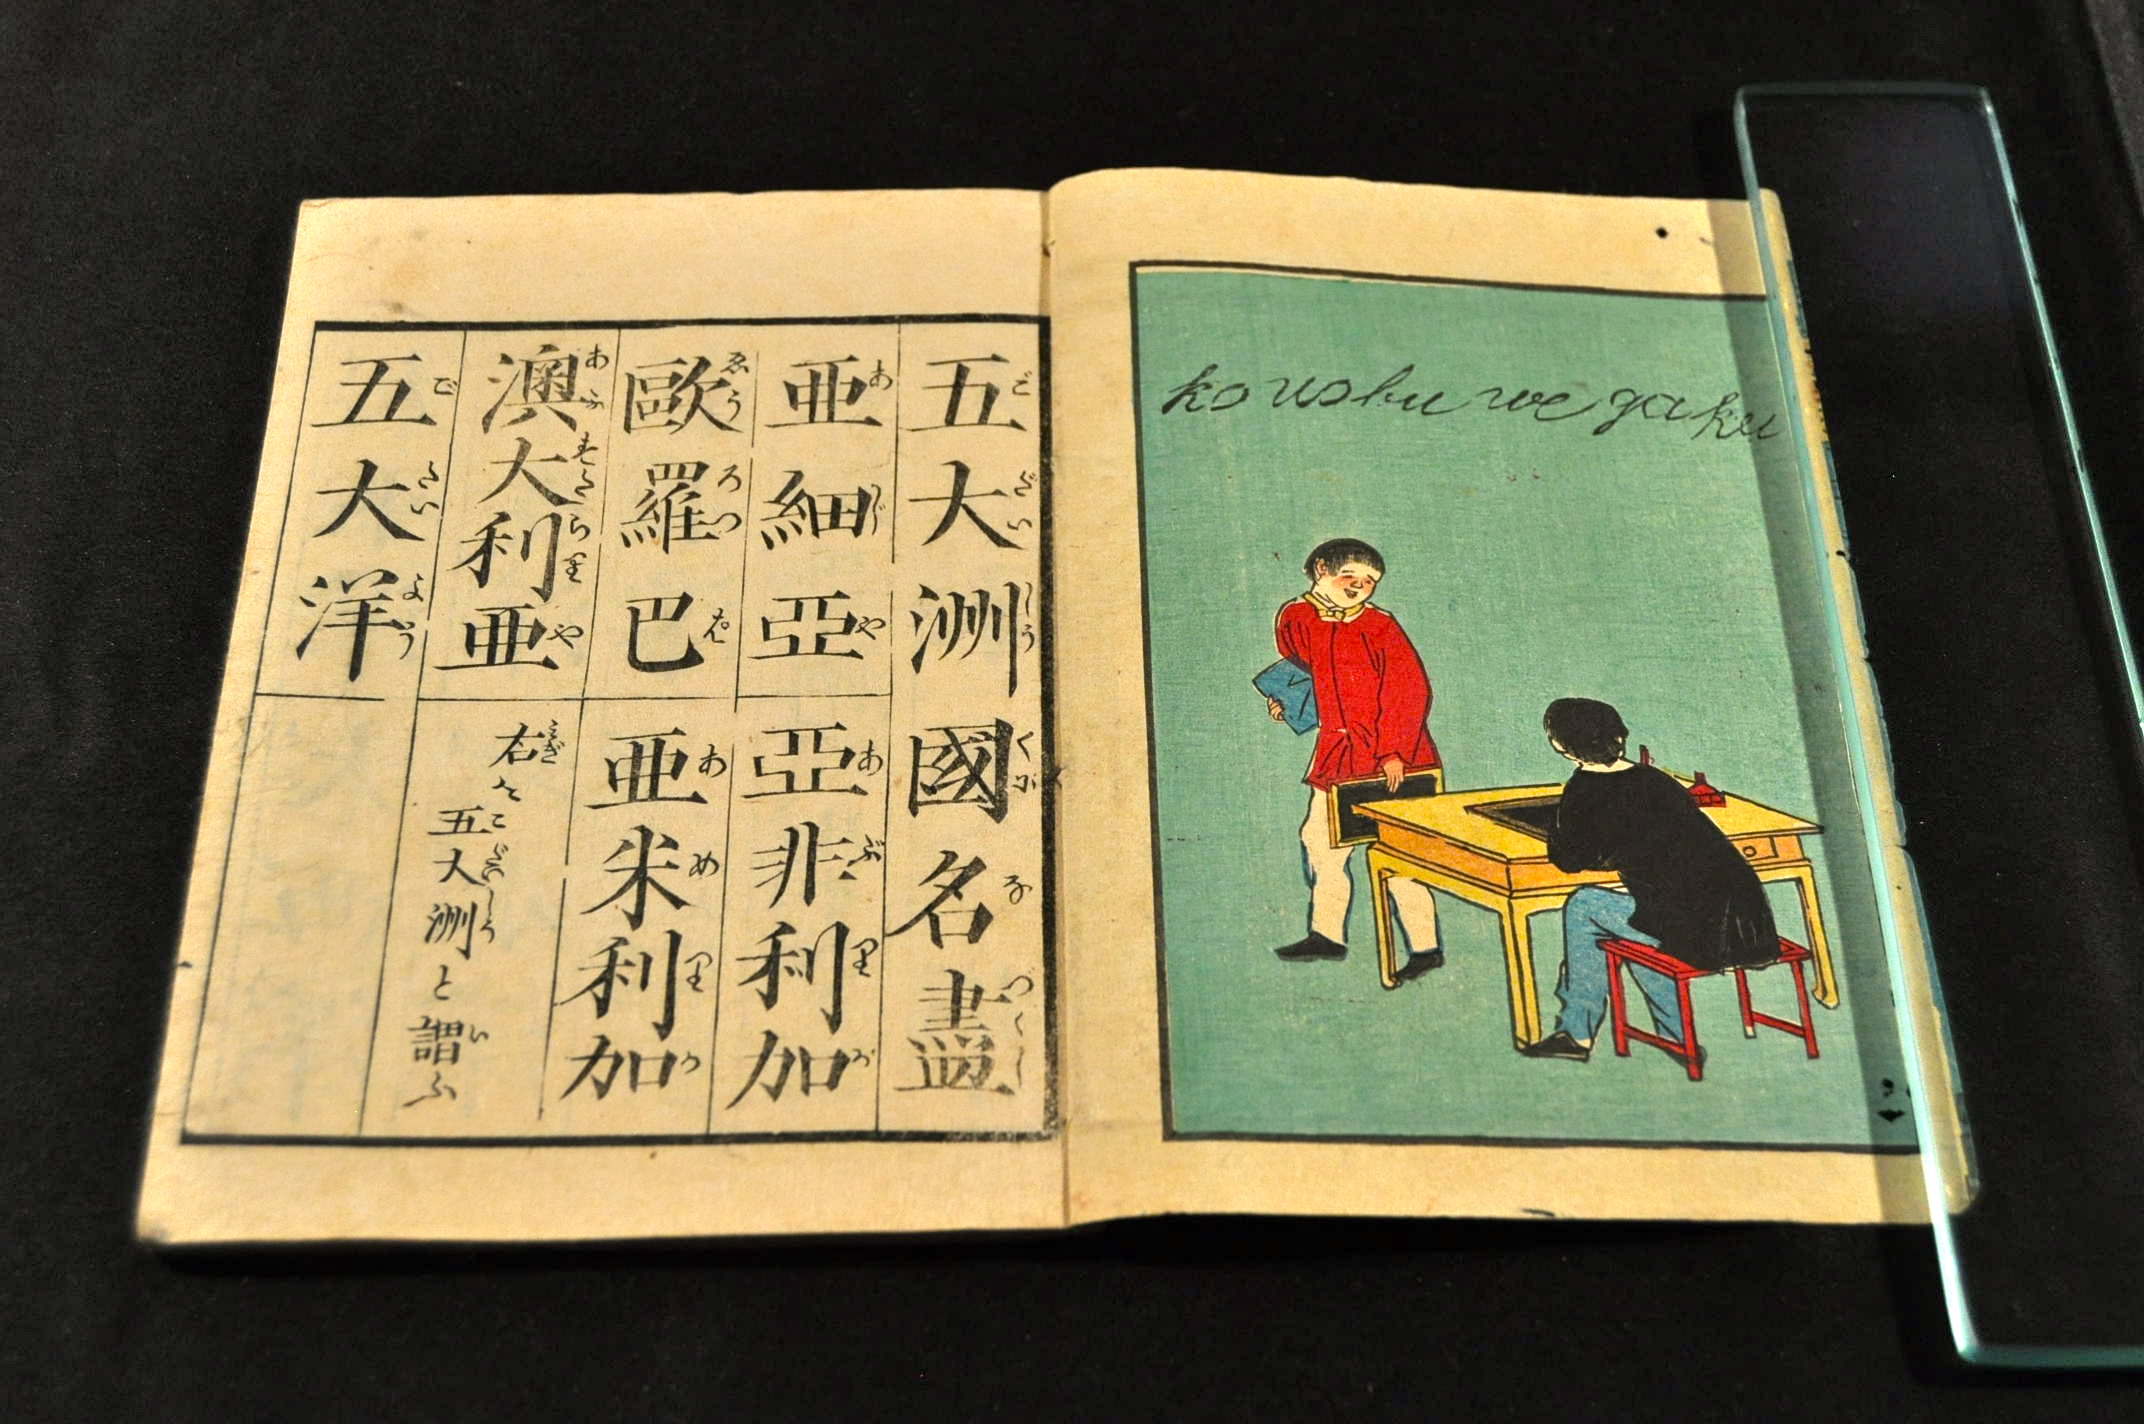 ko wobu we gaku
五大洲國名盡
亜細亞
亞非利加
歐羅巴
亜米利加
澳大利亜
右を
五大洲と謂ふ
五大洋